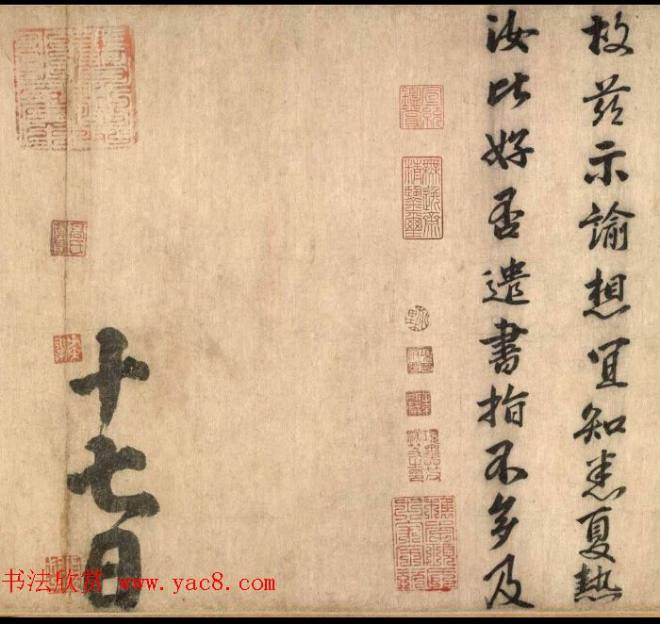 故茲示諭想宜知悉夏熱
汝比好否遣書指不多及
十七日
书法欣赏 www.yac8.com